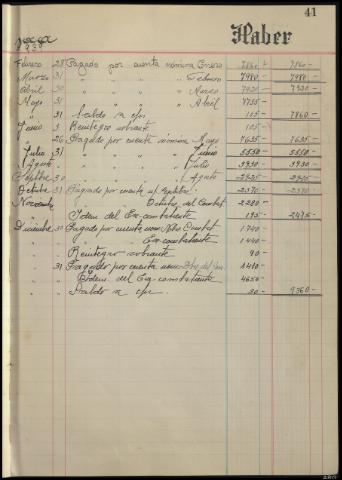 41
Haber
1938
Febrero 28 Pagado por cuenta nómina Enero 7860 - 7860 -
Marzo 31 " " " " Febrero 7980 - 7980 -
Abril 30 " " " " Marzo 7920 - 7920 -
Mayo 31 " " " " Abril 7755 -
" 31 Saldo a c/n 105 - 7860 -
Junio 1 Reintegro sobrante 105 -
" 26 Pagado por cuenta nómina Mayo 7635 - 7635 -
Julio 31 " " " " Junio 5550 - 5550 -
Agosto " " " " " Julio 3930 - 3930 -
Septbre 30 " " " " Agosto 2925 - 2925 -
Octubre 31 Pagado por cuenta Septbre - 2370 - 2370 -
Noviembre " " " Octubre, del Combat 2280 -
" " Idem del Ex-combatiente 195 - 2475 -
Diciembre 30 Pagado por cuenta Nbre Combat 1740 -
" " " " Ex-combatiente 1440 -
" " Reintegro sobrante 90 -
" 31 Pagado por cuenta Dbre del Com 1410 -
" " Idem. del Ex-combatiente 4650 -
" " Saldo a c/n 30 - 9360 -